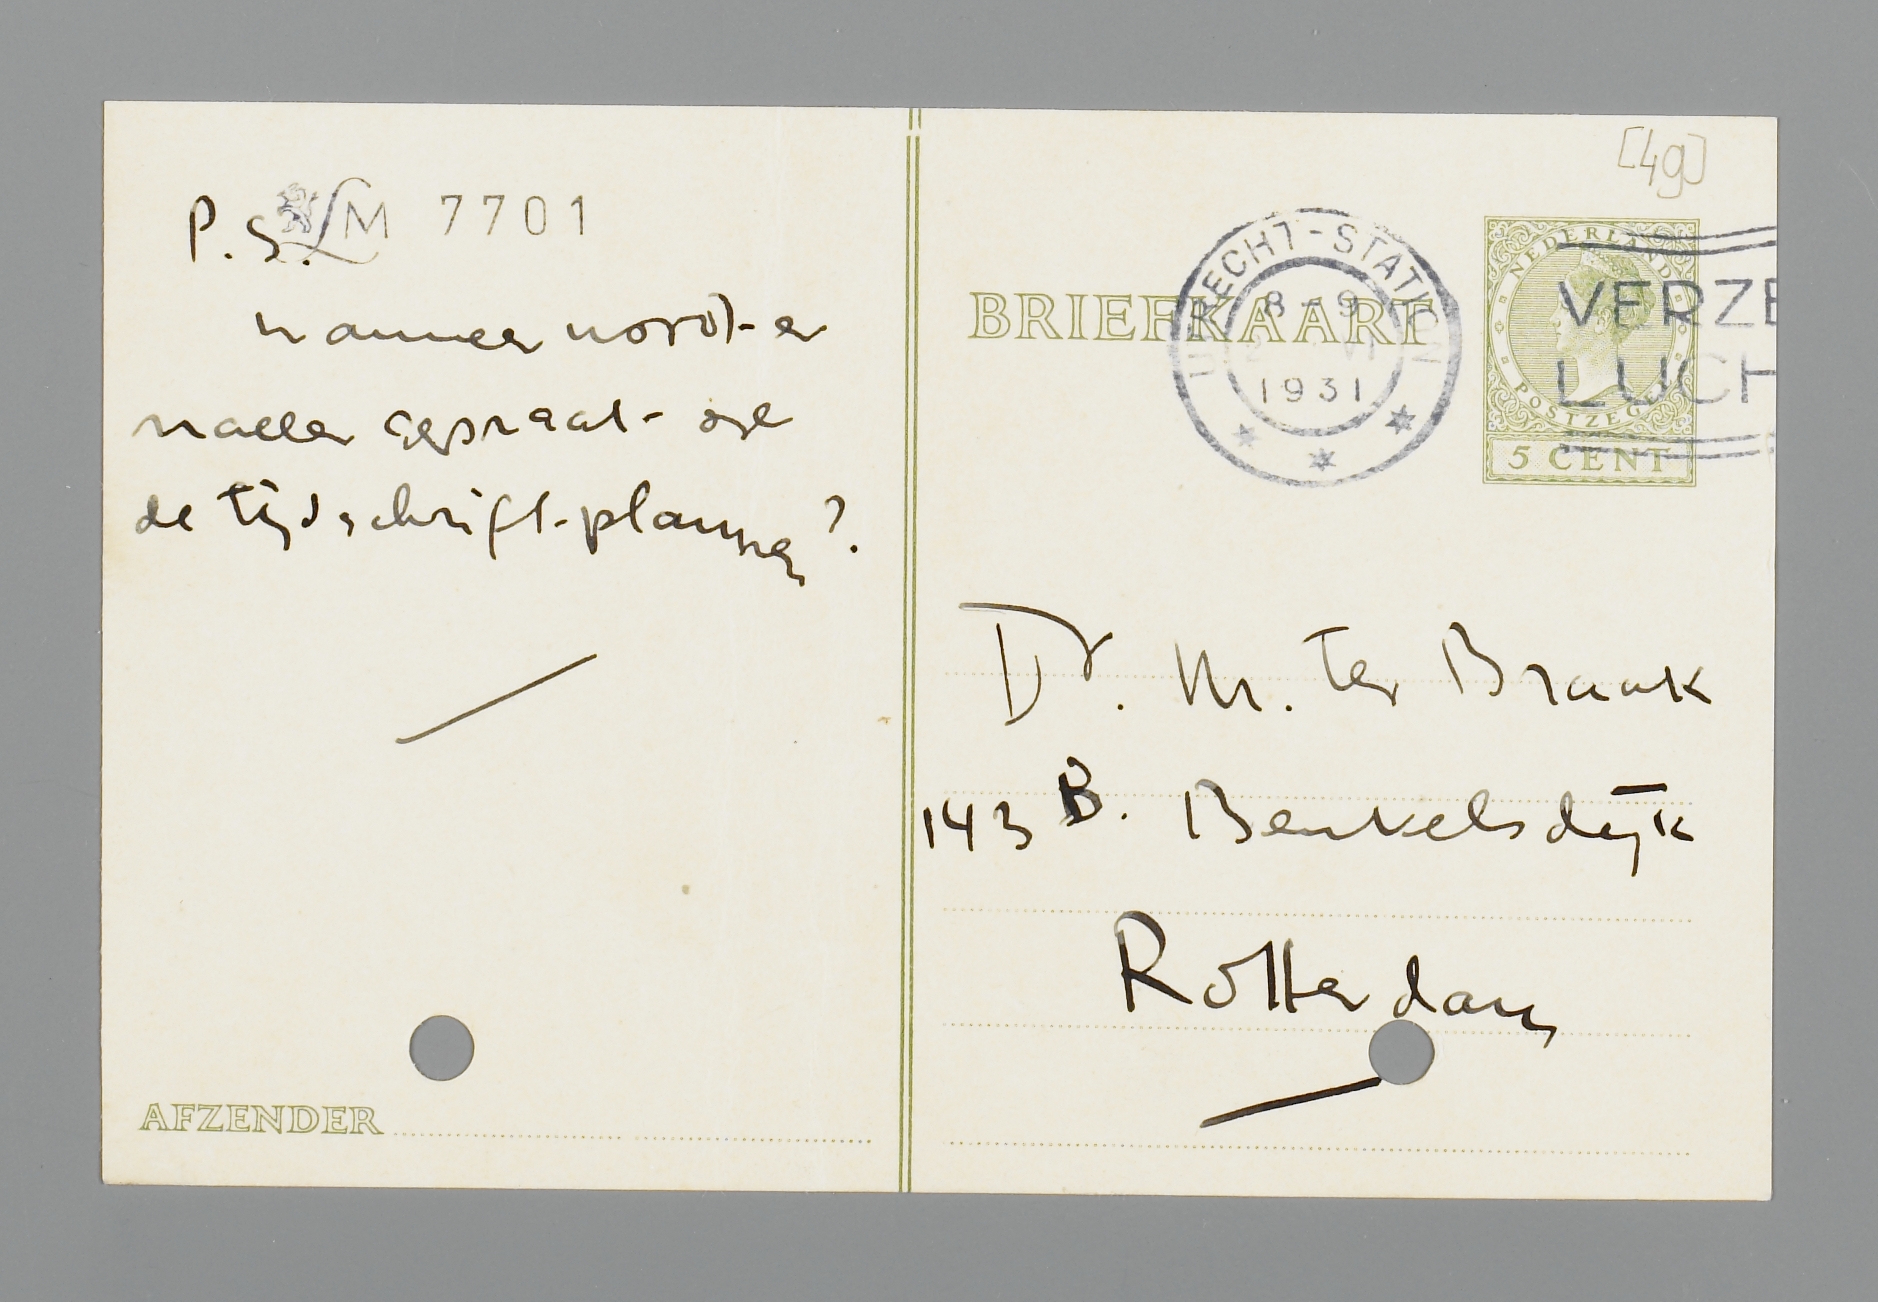 P.S.
LM 7701
wanneer wordt er
nader gepraat over
de tijdschrift-plannen?
AFZENDER
[49]
BRIEFKAART
UTRECHT-STATION
8-9
VI
1931
NEDERLAND
POSTZEGEL
5 CENT
VERZE
LUCH
Dr. M. ter Braak
143 B. Beukelsdijk
Rotterdam